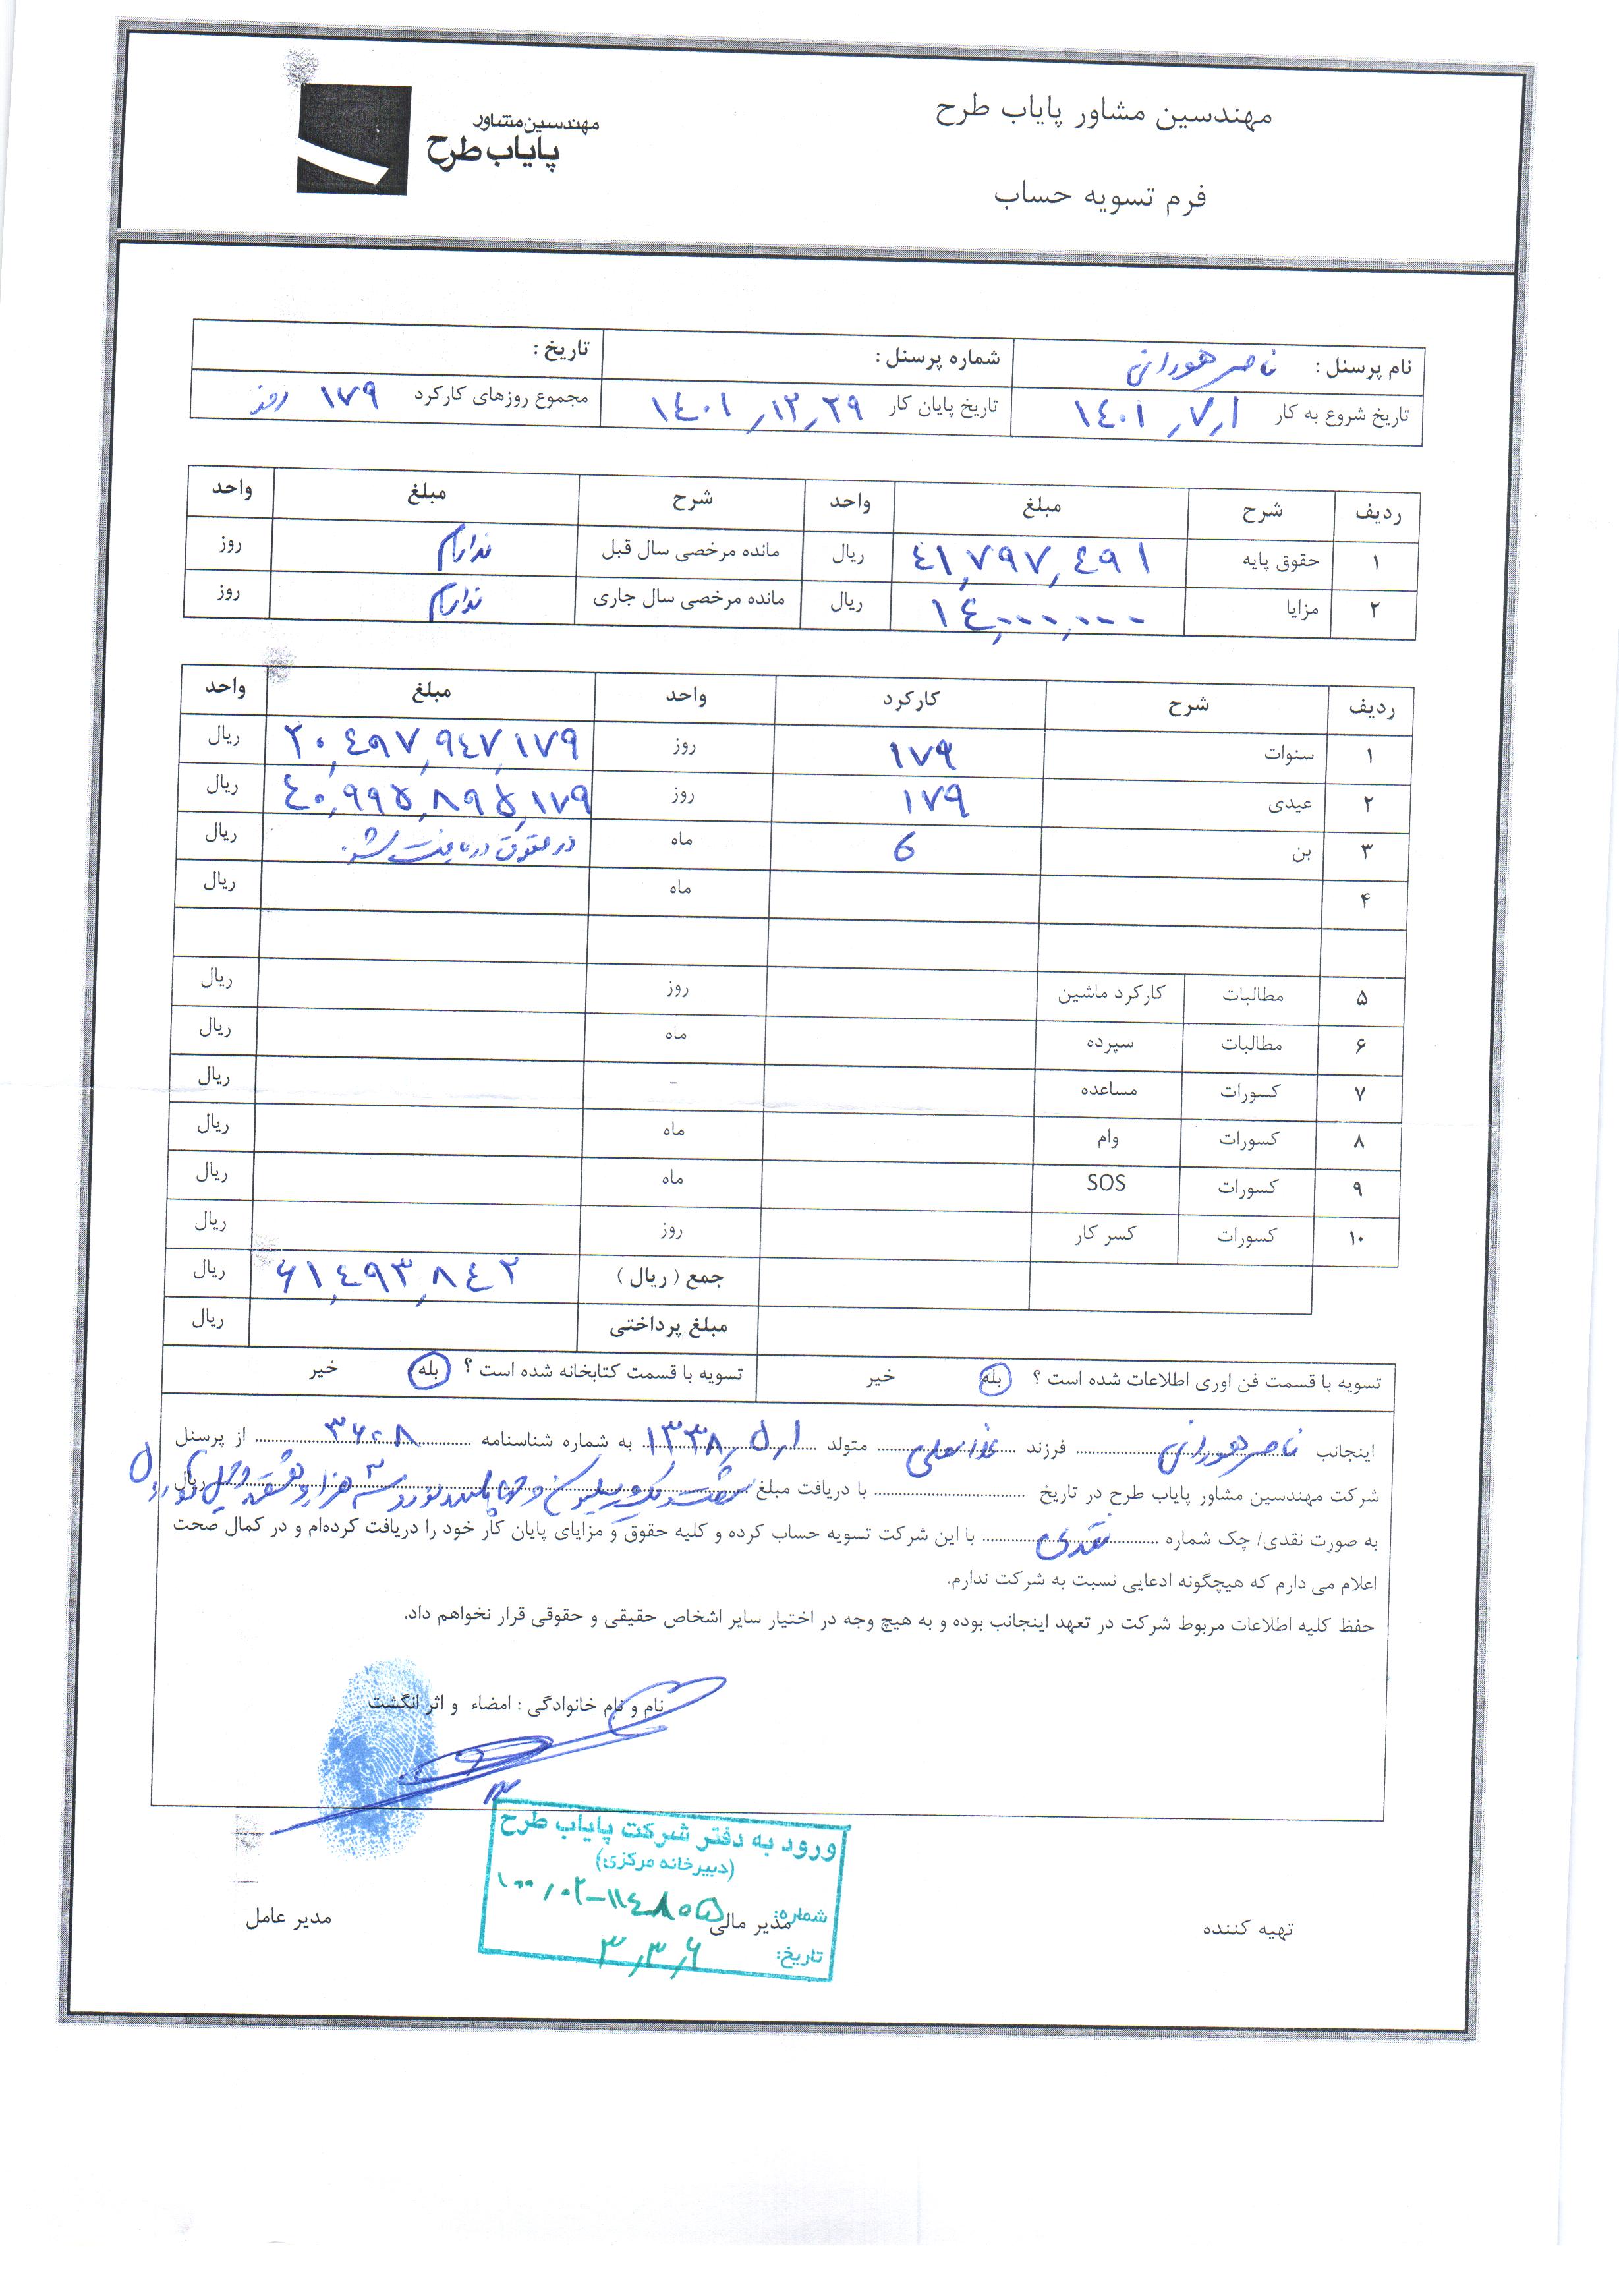 مهندسین مشاور پایاب طرح
مهندسین مشاور
پایاب طرح
فرم تسویه حساب
نام پرسنل : ناصر هورانی شماره پرسنل : تاریخ :
تاریخ شروع به کار ۱۴۰۱/۷/۱ تاریخ پایان کار ۱۴۰۱/۱۲/۲۹ مجموع روزهای کارکرد ۱۷۹ روز
ردیف شرح مبلغ واحد شرح مبلغ واحد
۱ حقوق پایه ۴۱,۷۹۷,۴۹۱ ریال مانده مرخصی سال قبل ندارم روز
۲ مزایا ۱۴,۰۰۰,۰۰۰ ریال مانده مرخصی سال جاری ندارم روز
ردیف شرح کارکرد واحد مبلغ واحد
۱ سنوات ۱۷۹ روز ۲۰,۴۹۷,۹۴۷,۱۷۹ ریال
۲ عیدی ۱۷۹ روز ۴۰,۹۹۵,۸۹۵,۱۷۹ ریال
۳ بن 6 ماه در حقوق دریافت شد. ریال
۴ ماه ریال
۵ مطالبات کارکرد ماشین روز ریال
۶ مطالبات سپرده ماه ریال
۷ کسورات مساعده - ریال
۸ کسورات وام ماه ریال
۹ کسورات SOS ماه ریال
۱۰ کسورات کسر کار روز ریال
جمع ( ریال ) ۶۱,۴۹۳,۸۴۲ ریال
مبلغ پرداختی ریال
تسویه با قسمت فن اوری اطلاعات شده است ؟ بله خیر تسویه با قسمت کتابخانه شده است ؟ بله خیر
اینجانب ناصر هورانی فرزند متولد ۱۳۳۸/۵/۱ به شماره شناسنامه ۳۶۰۸ از پرسنل
شرکت مهندسین مشاور پایاب طرح در تاریخ با دریافت مبلغ شصت و یک میلیون و چهارصد و نود و سه هزار و هشتصد و چهل و دو ریال ریال
به صورت نقدی/ چک شماره نقدی با این شرکت تسویه حساب کرده و کلیه حقوق و مزایای پایان کار خود را دریافت کرده‌ام و در کمال صحت
اعلام می دارم که هیچگونه ادعایی نسبت به شرکت ندارم.
حفظ کلیه اطلاعات مربوط شرکت در تعهد اینجانب بوده و به هیچ وجه در اختیار سایر اشخاص حقیقی و حقوقی قرار نخواهم داد.
نام و نام خانوادگی : امضاء و اثر انگشت
ورود به دفتر شرکت پایاب طرح
(دبیرخانه مرکزی)
شماره: ۱۰۰/۰۲-۱۱۴۸۰۵
تاریخ: ۳/۳/۶
تهیه کننده مدیر مالی مدیر عامل